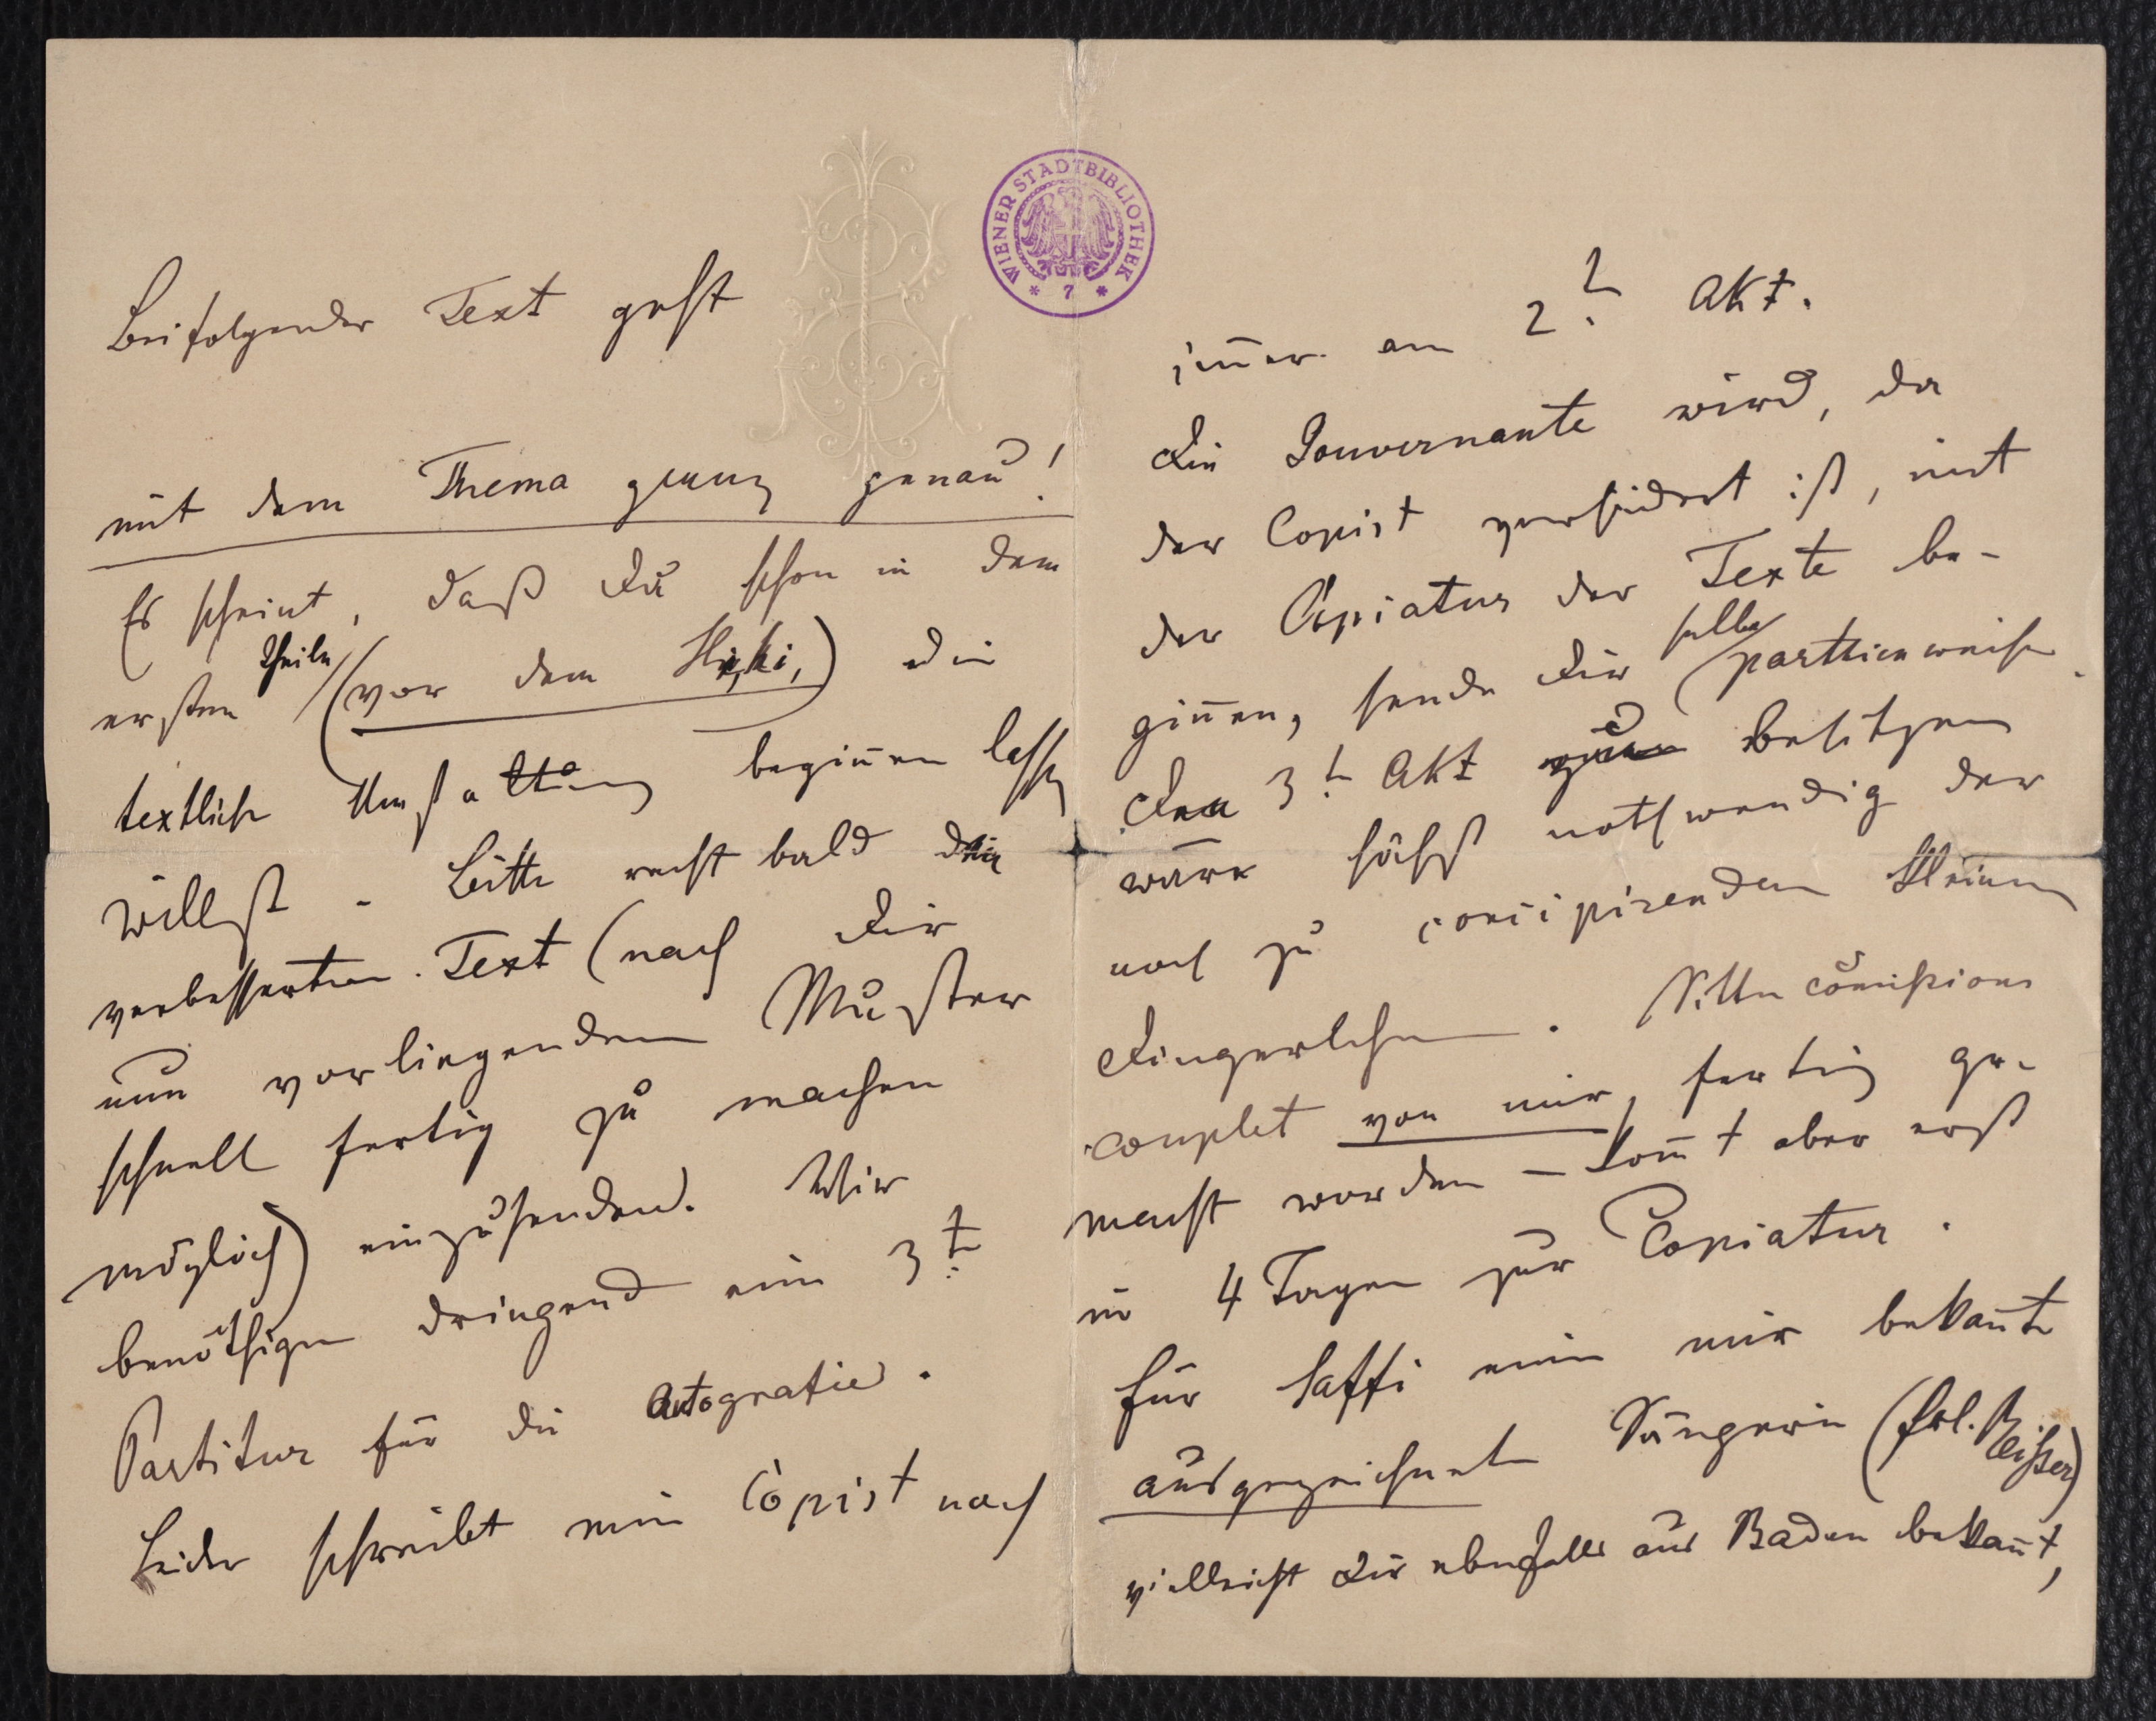 WIENER STADTBIBLIOTHEK
* 7 *
Beifolgender Text geht
mit dem Thema ganz genau!
Es scheint, daß Du schon in dem
ersten Theile (vor dem Hi, hi,) die
textliche beginnen lassen
willst - Bitte recht bald den
verbesserten Text (nach Dir
nun vorliegendem Muster
schnell fertig zu machen
möglich) einzusenden. Wir
benöthigen dringend eine 3t
Partitur für die Autografie.
Leider schreibt mein Copist noch
im̄er am 2t Akt.
Die Gouvernante wird, da
der Copist verhindert ist, mit
der Copiatur der Texte be-
gin̄en, sende Dir selbe partienweise.
Den 3t Akt zu besitzen
wäre höchst nothwendig der
noch zu concipirenden kleinen
Dingerchen. Sittencom̄issions
couplet von mir, fertig ge-
macht worden - kom̄t aber erst
in 4 Tagen zur Copiatur.
Für Saffi eine mir bekan̄te
ausgezeichnete Sängerin (Frl. Reißer)
vielleicht Dir ebenfalls aus Baden bekan̄t,